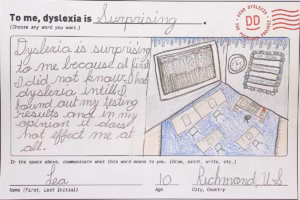 To me, dyslexia is Surprising.
(Choose any word you want.)
DEAR DYSLEXIA
DD
Dyslexia is surprising
to me because at first
I did not know I had
dyslexia intill I
found out my testing
results and in my
opinion it does
not effect me at
all.
In the space above, communicate what this word means to you. (Draw, paint, write, etc.)
Lea 10 Richmond, U.S
Name (First, Last Initial) Age City, Country